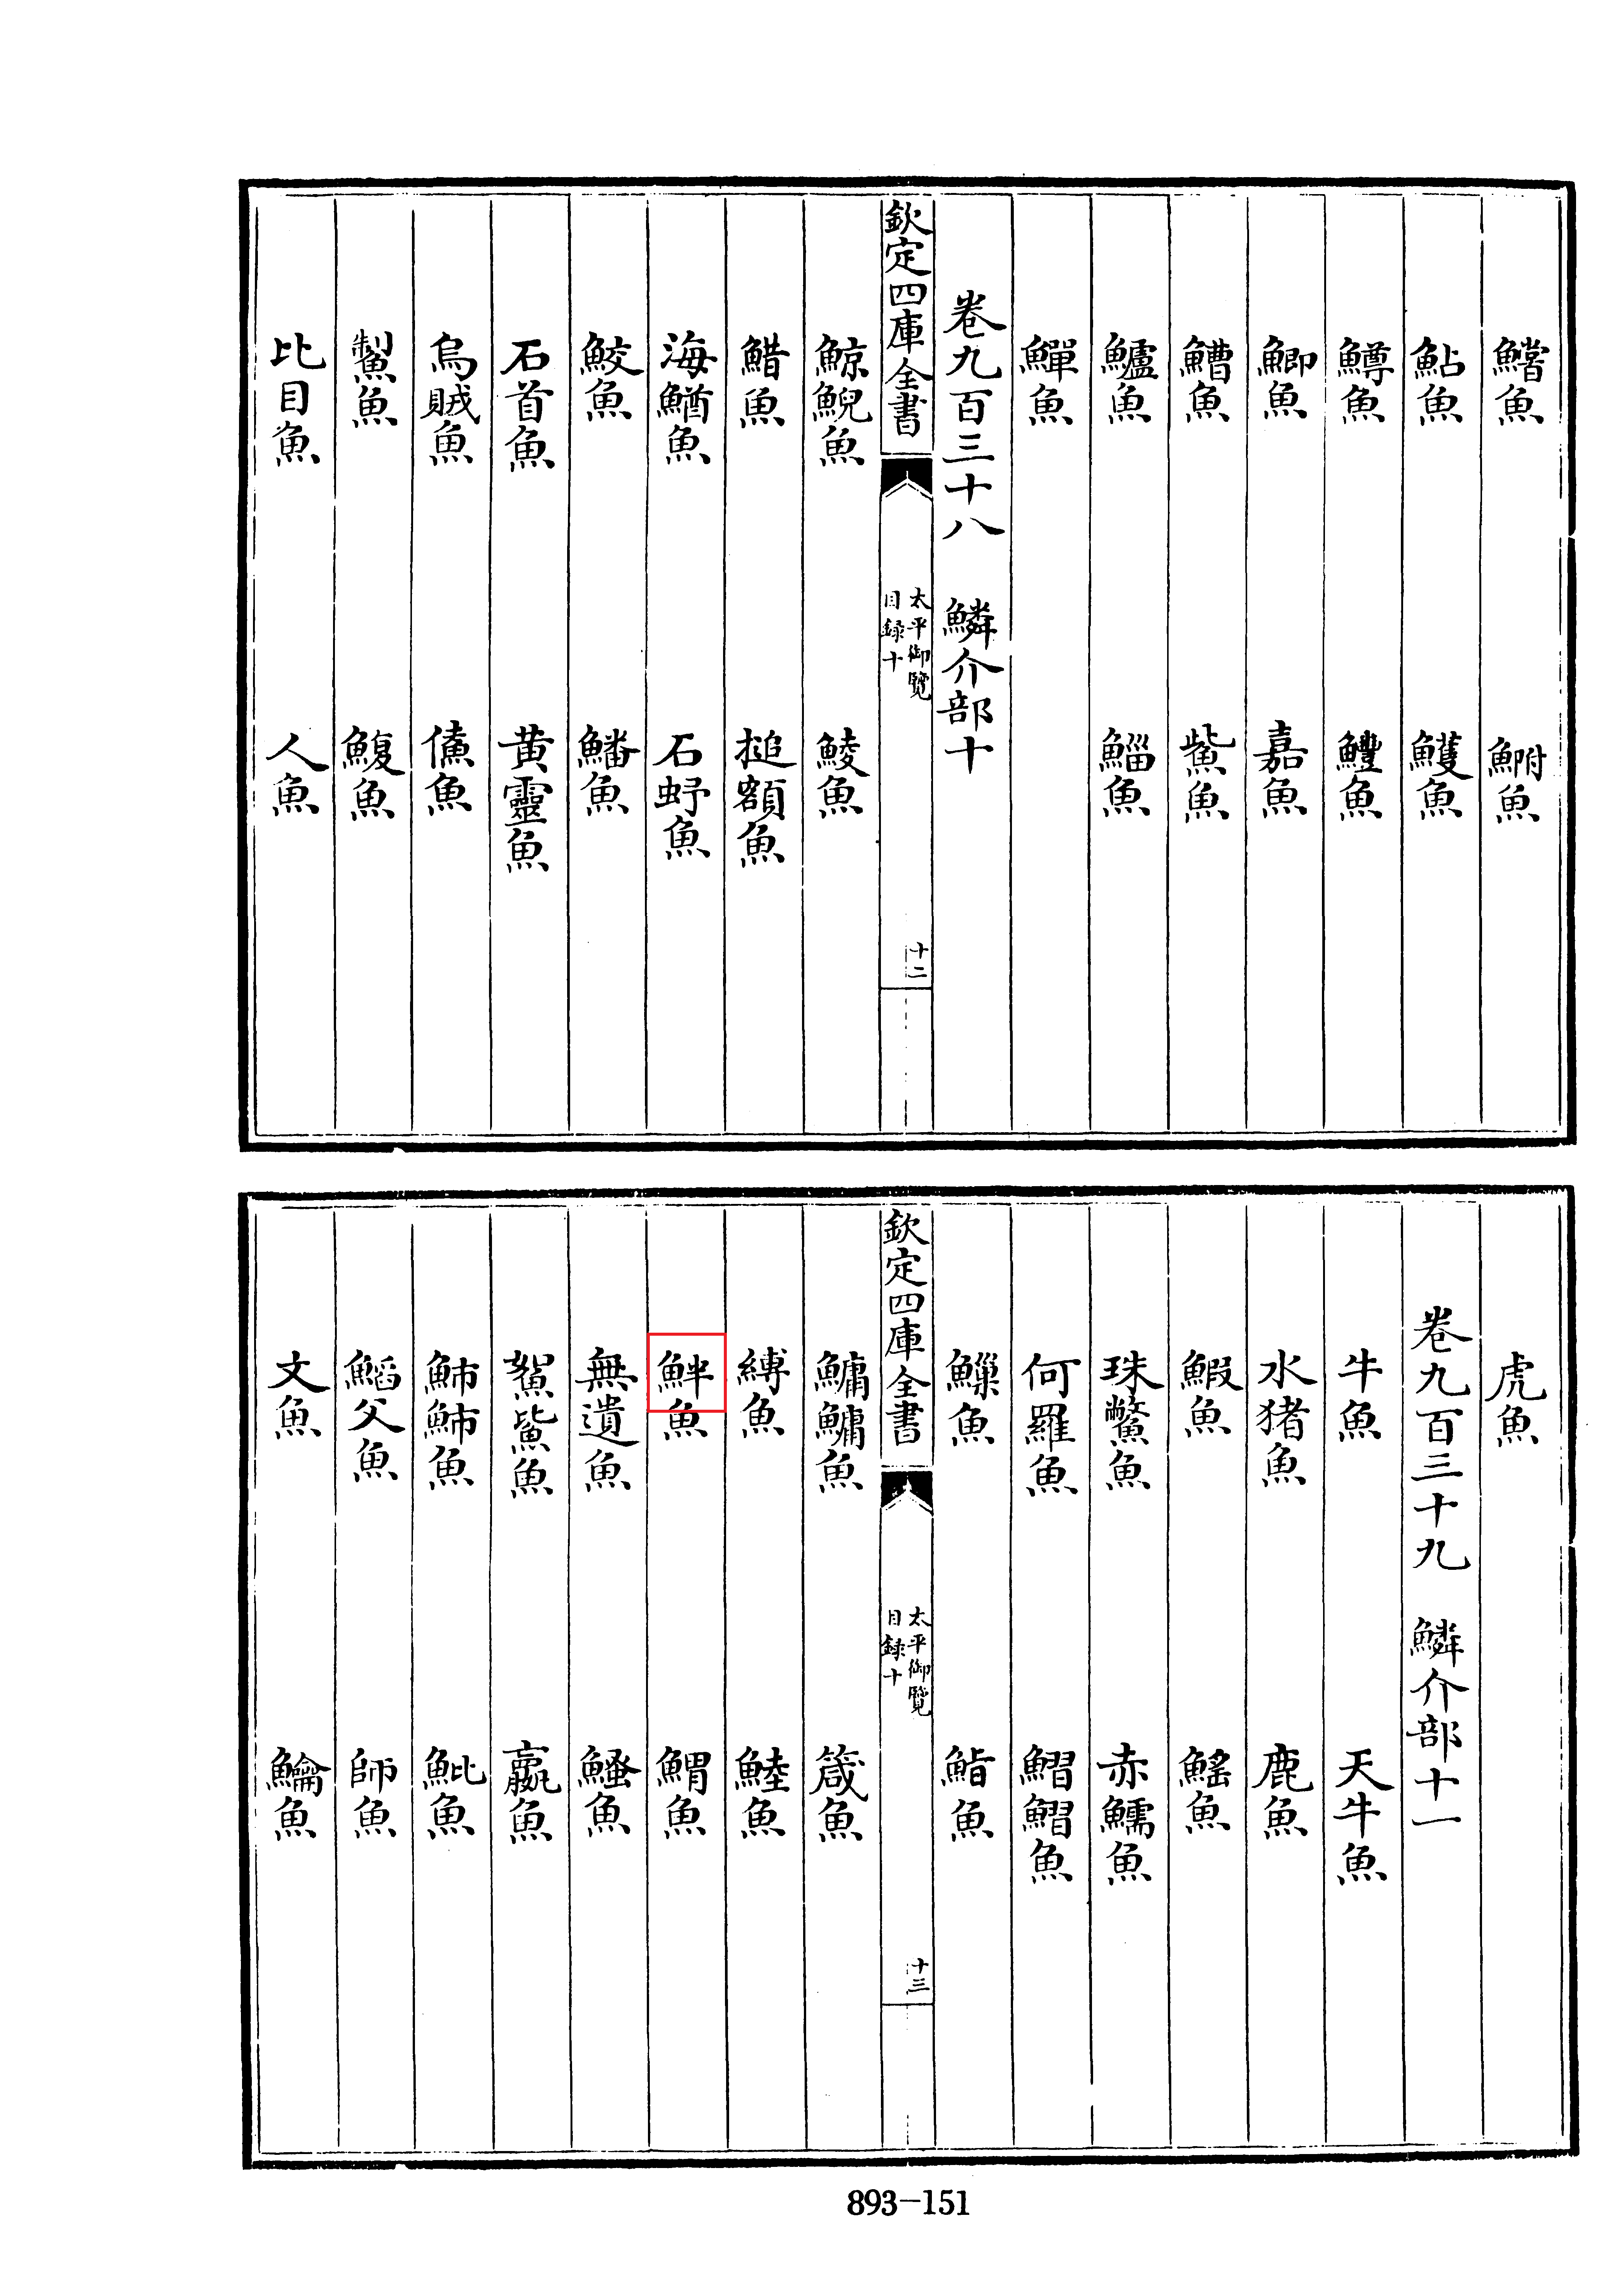 鱨魚 魚
鮎魚 鱯魚
鱒魚 鱧魚
鯽魚 嘉魚
鰽魚 鮆魚
鱸魚 鯔魚
鱓魚
卷九百三十八 鱗介部十
欽定四庫全書
太平御覽
目録十
十二
鯨鯢魚 鯪魚
䱜魚 搥額魚
海鰌魚 石魚
鮫魚 鱕魚
石首魚 黄靈魚
烏賊魚 儵魚
魚 鰒魚
比目魚 人魚
虎魚
卷九百三十九 鱗介部十一
牛魚 天牛魚
水猪魚 鹿魚
鰕魚 鰩魚
珠鱉魚 赤鱬魚
何羅魚 鰼鰼魚
魚 鮨魚
欽定四庫全書
太平御覽
目録十
十三
鱅鱅魚 箴魚
縛魚 鯥魚
魚 魚
無遺魚 鰠魚
鮆魚 魚
魚 魮魚
父魚 師魚
文魚 魚
893-151